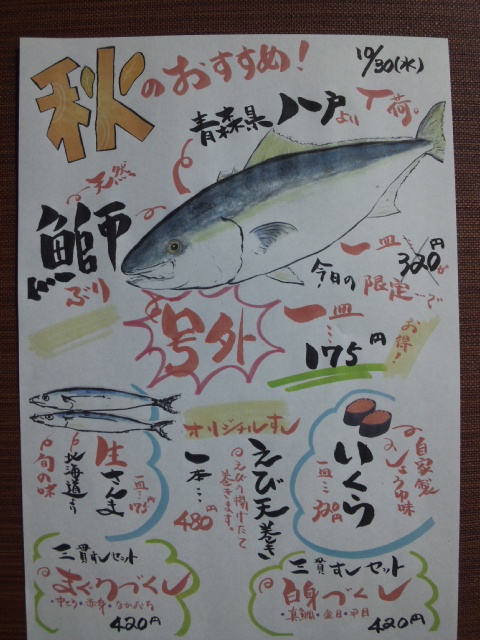 秋のおすすめ!
10/30(水)
青森県八戸より入荷。
天然
鰤
ぶり
一皿320円が
今日の限定…で
号外
一皿…175円
お得!
生さんま
一皿…175円
北海道より
旬の味
オリジナルすし
えび天巻き
えび1本揚げたて
巻きます。
一本…480円
いくら
自家製
しょうゆ味
一皿…320円
三貫すしセット
まぐろづくし
・中とろ・赤身・なかおち
420円
三貫すしセット
白身づくし
・真鯛・金目・平目
420円